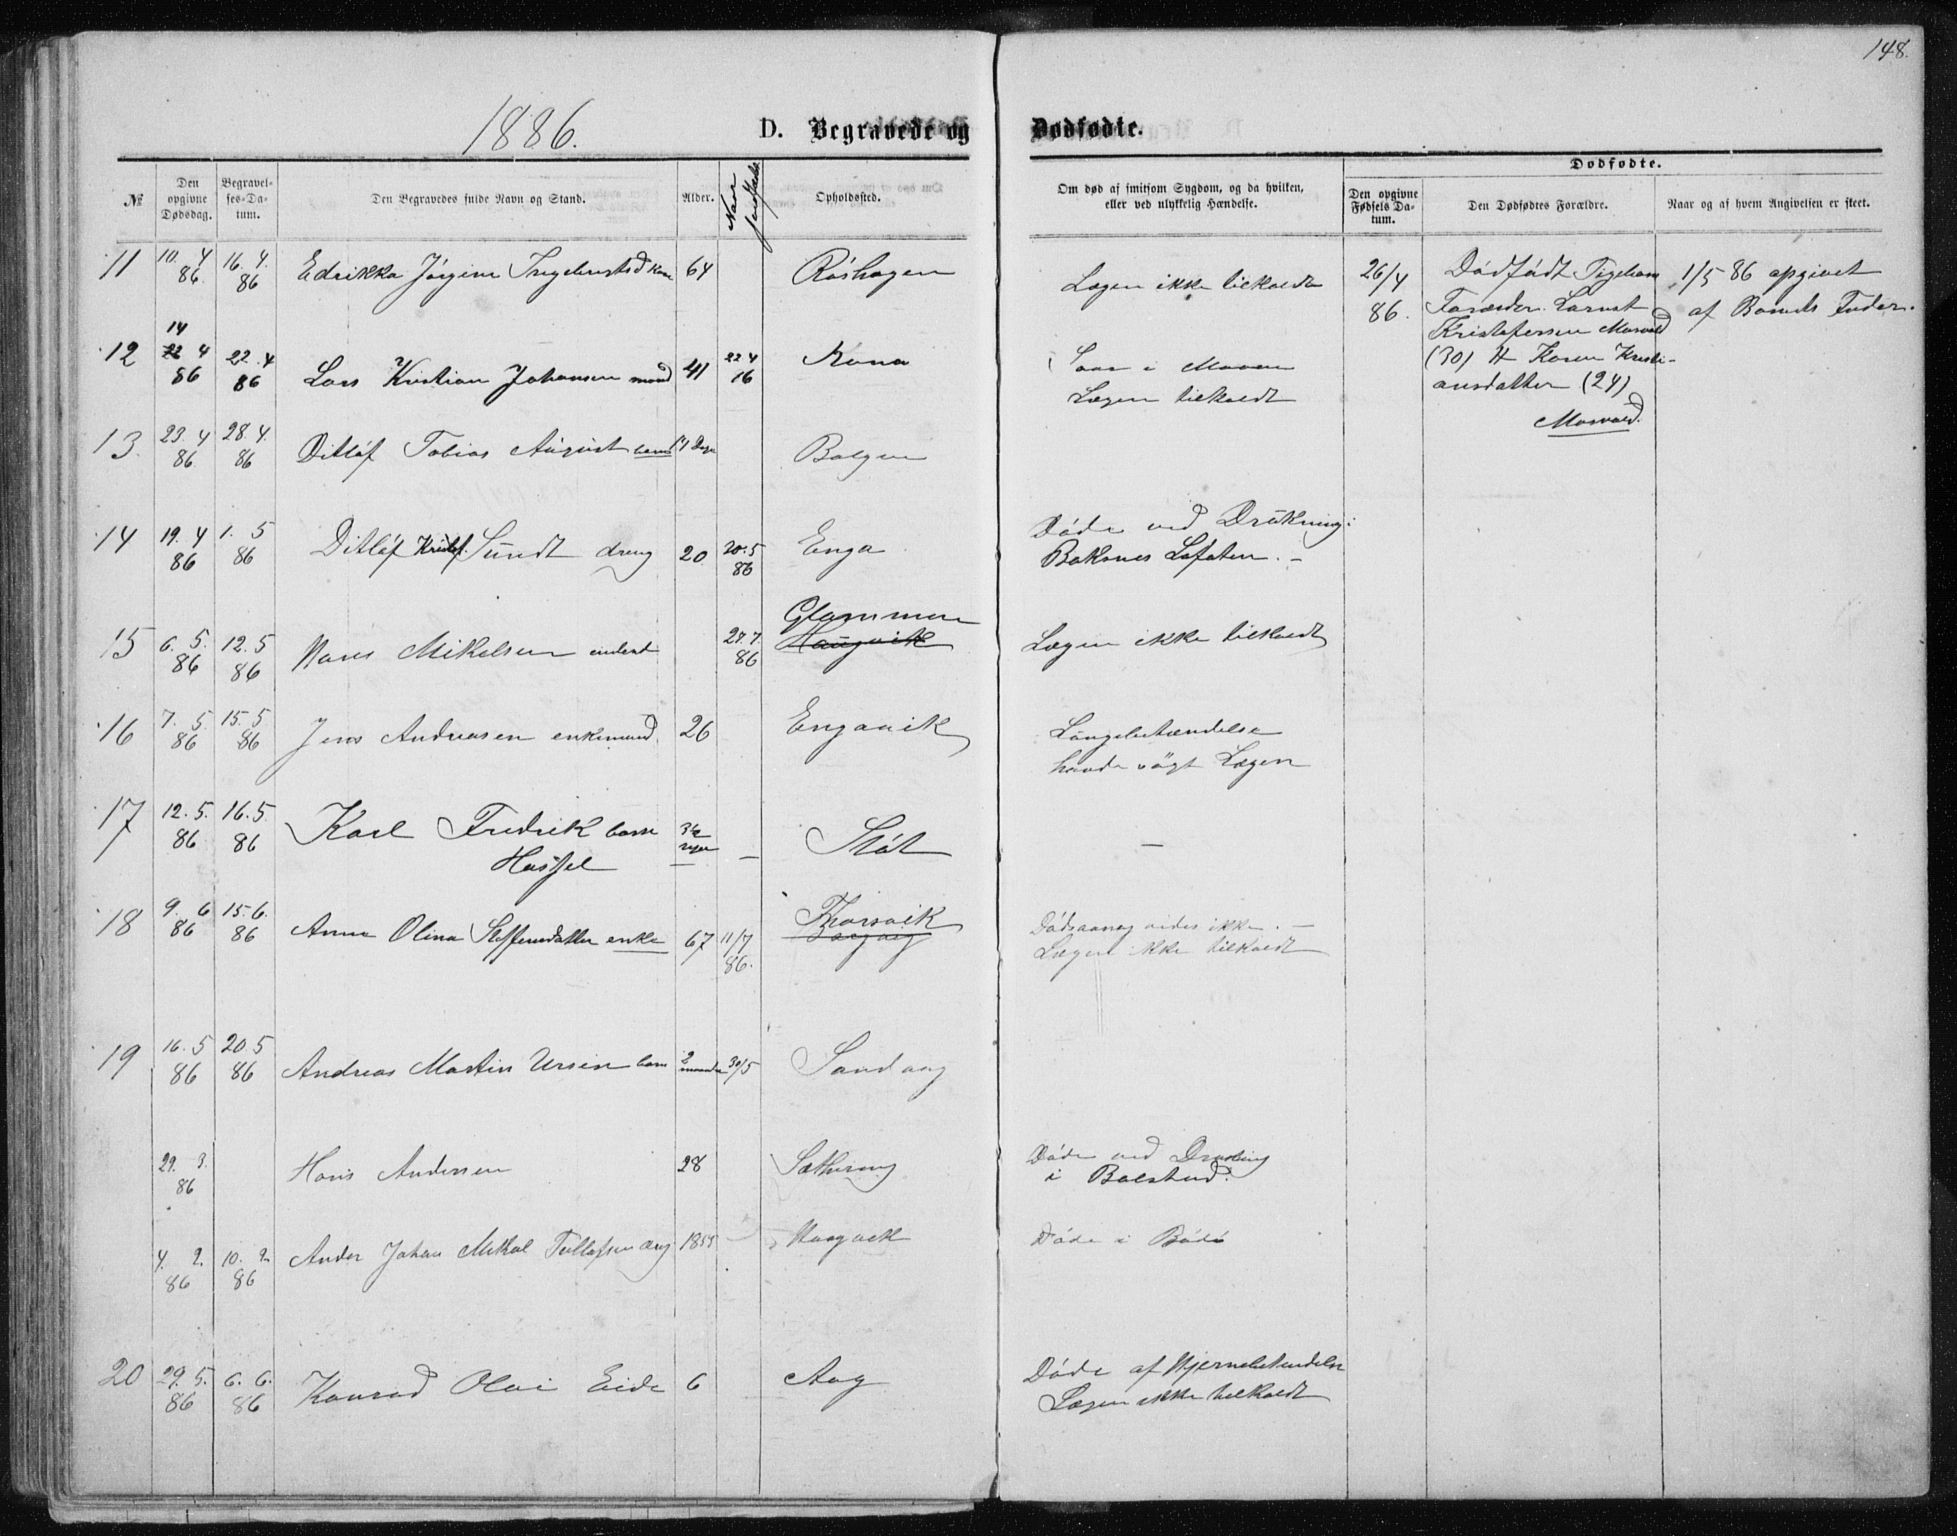 148.
1886.
D. Begravede og Dødfødte.
Dødfødte.
№
Den opgivne Dødsdag.
Begravelses-Datum.
Den Begravedes fulde Navn og Stand.
Alder.
Naar
Opholdssted.
Om død af smitsom Sygdom, og da hvilken, eller ved ulykkelig Hændelse.
Den opgivne Fødsels Datum.
Den Dødfødtes Forældre.
Naar og af hvem Angivelsen er skeet.
11 10. 4 86 16. 4. 86 Edrikka Jørgine 64 Røshagen
Lægen ikke tilkaldt
26/4 86.
Dødfødt
Kristofersen
(30) H Karen Kristi-
ansdatter (24)
1/5 86 opgivet
af Barnets Fader.
12 14 22 4 86 22. 4 86 Lars Kristian Johansen mand 41 22 4 16
i Maven
Lægen tilkaldt
13. 23. 4 86 28. 4. 86 Ditløf Tobias August barn 14 Dage Bolgen
14 19. 4 86 1. 5 86 Ditløf Kristof. Sundt dreng 20 20. 5 86 Enga
Døde ved Drukning i
Lofoten. –
Glommen
15 6. 5. 86 12. 5 86 Hans Mikelsen 27. 7. 86 Haugvik
Lægen ikke tilkaldt
16 7. 5. 86 15. 5 86 Jens Andreasen enkemand 26 Engavik
Lungebetændelse
havde søgt Lægen
17 12. 5. 86 16. 5 86 Karl Fredrik barn – Støt –
Hassel
18 9. 6 86 15. 6. 86 Anne Olina Steffensdatter enke 67 11/7 86. Thorsvik
Dødsaarsag vides ikke. –
Lægen ikke tilkaldt
19 16. 5 86 20. 5 86 Andreas Martin Ursin barn 2 maaneder 30/5 Sandvag
29. 3. 86 Hans Andersen 28
Døde ved
i
4. 2. 86 10. 2. 86 Ander Johan Mikal 1855 Haugvik
Døde i Bodø
20 29. 5. 86 6. 6. 86 Konrad Olai Eide 6 Aag
Døde af Hjernebetændelse
Lægen ikke tilkaldt